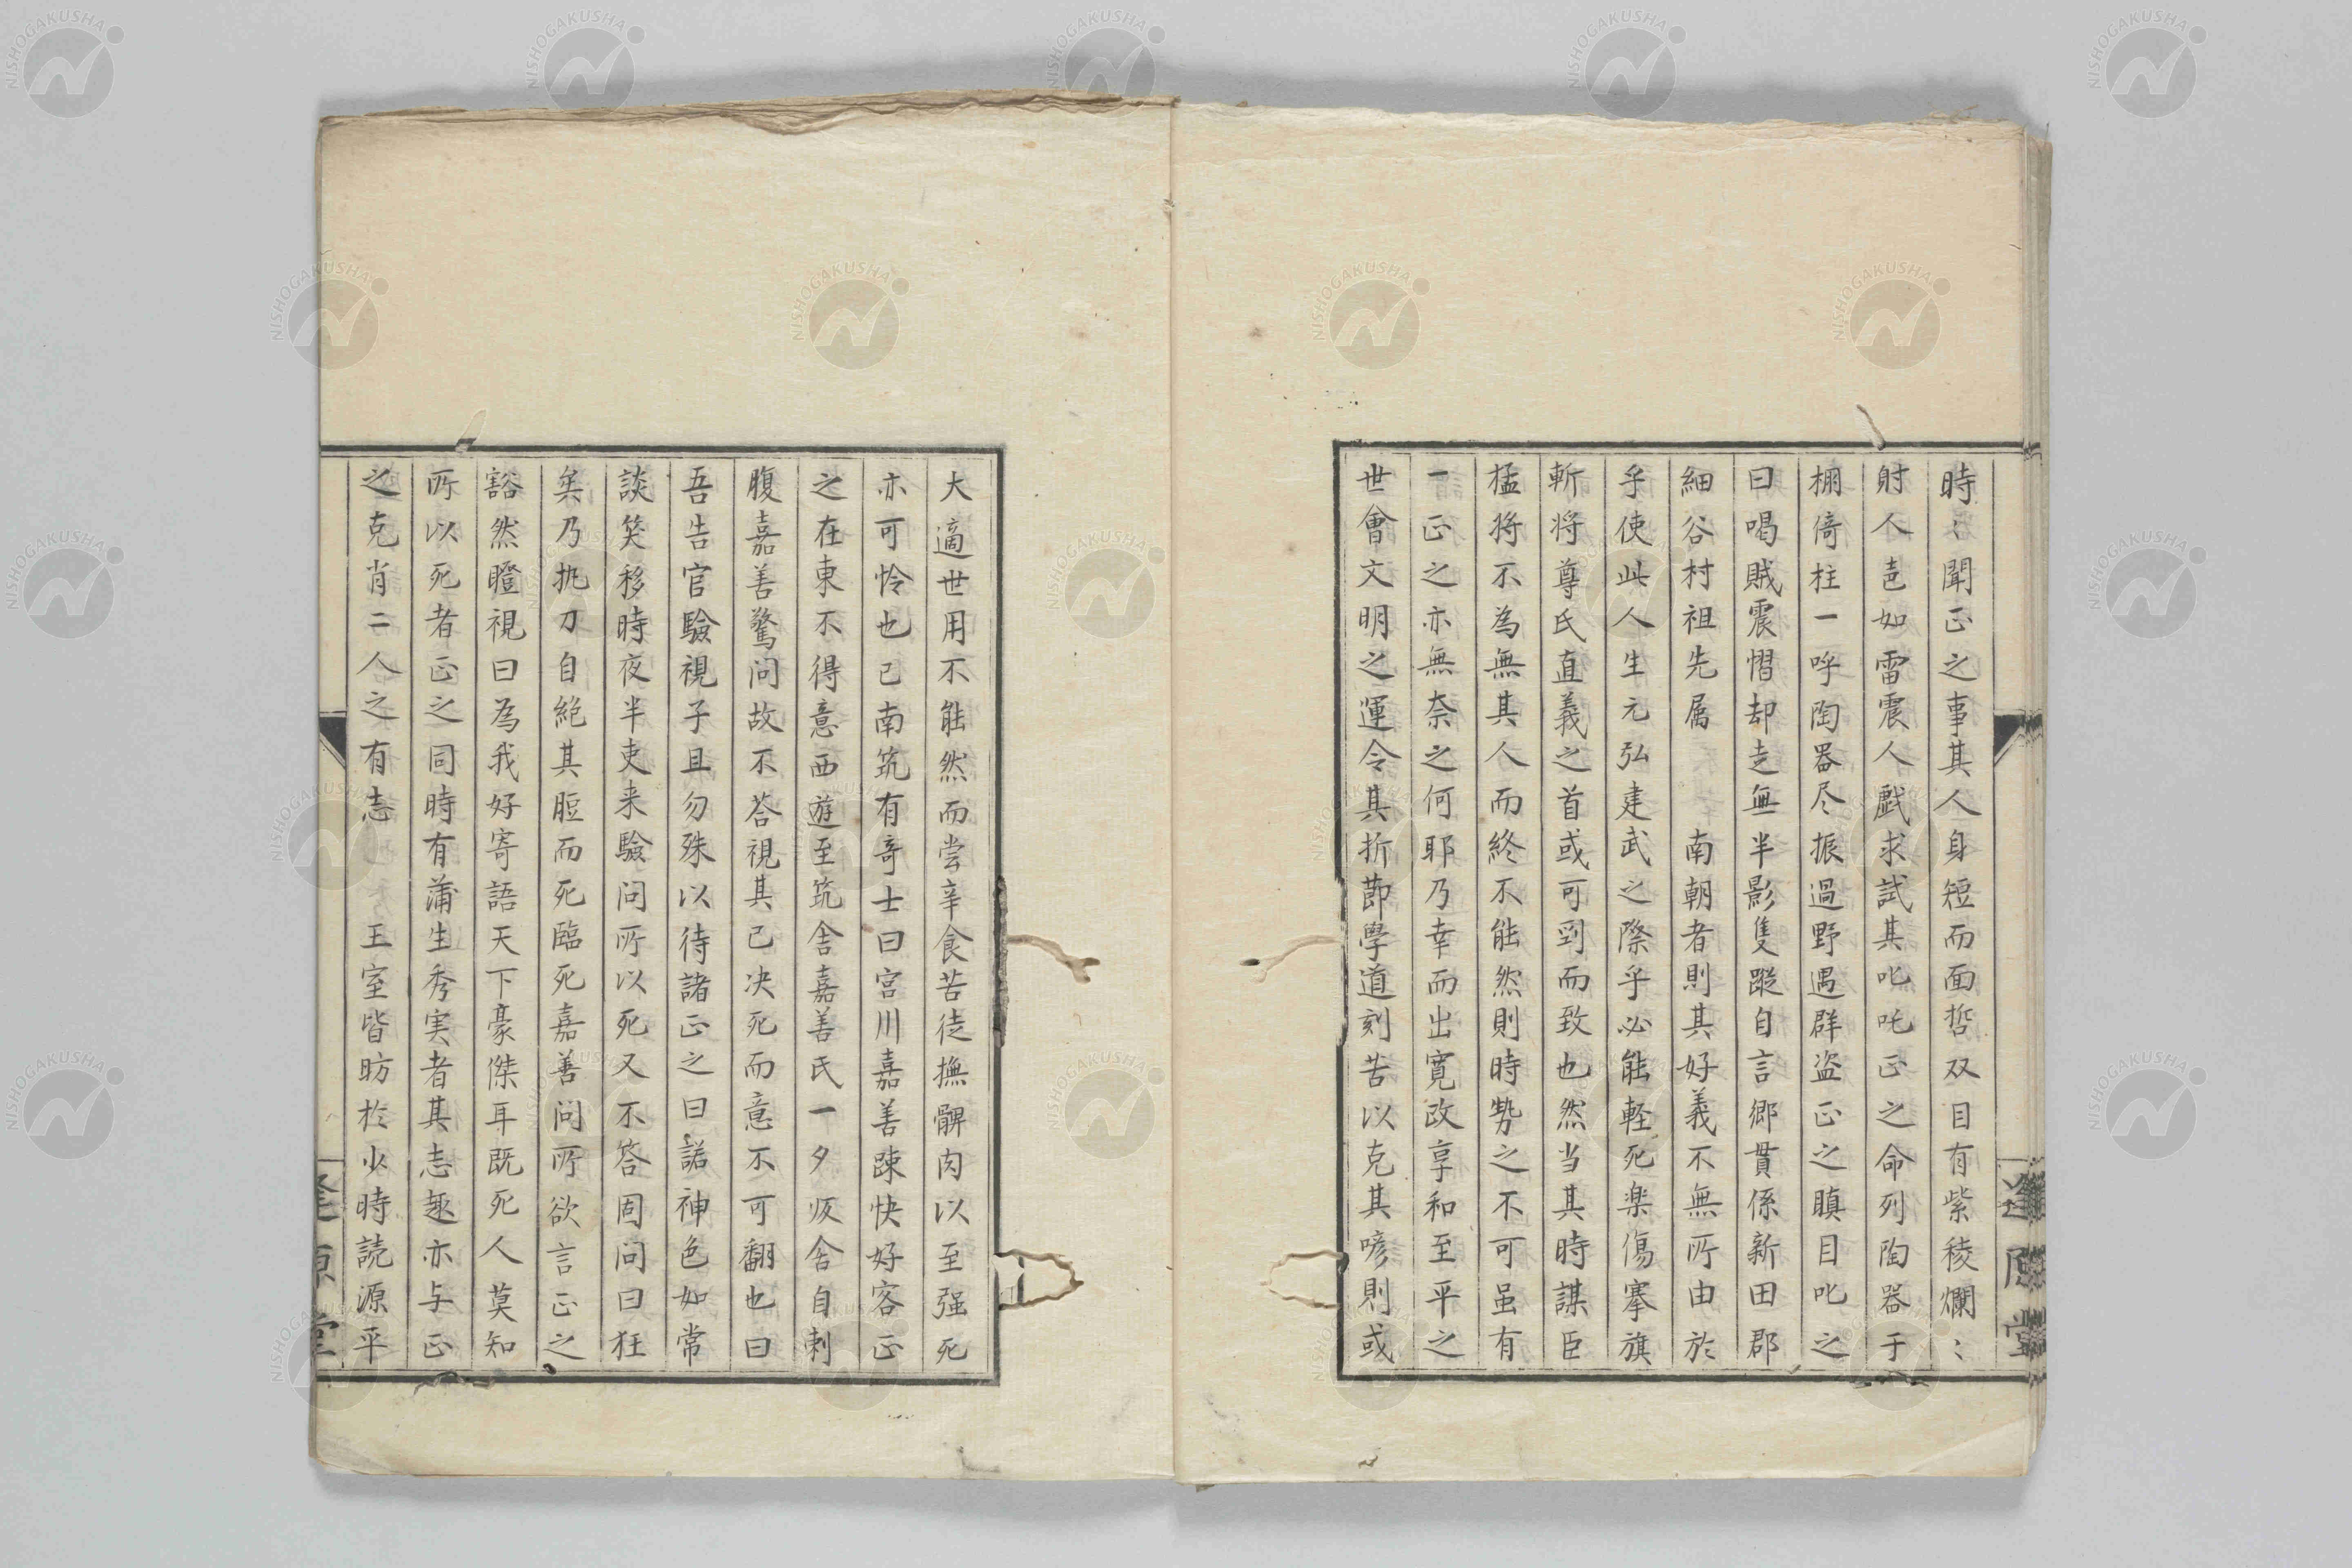 時〻聞正之事其人身短而面哲双目有紫稜爛〻
射人芒如雷震人戯求試其叱咤正之命列陶器于
棚倚柱一呼陶器尽振過野遇群盗正之瞋目叱之
曰喝賊震慴却走無半影隻蹤自言郷貫係新田郡
細谷村祖先属　南朝者則其好義不無所由於
乎使此人生元弘建武之際乎必能軽死楽傷搴旗
斬将尊氏直義之首或可到而致也然当其時謀臣
猛将不為無其人而終不能然則時勢之不可虽有
一正之亦無奈之何耶乃幸而出寛政享和至平之
世會文明之運令其折節學道刻苦以克其喭則或
大適世用不能然而尝辛食苦徒撫髀肉以至强死
亦可怜也已南筑有奇士曰宮川嘉善踈快好客正
之在東不得意西遊至筑舍嘉善氏一夕仮舍自刺
腹嘉善驚问故不荅視其已决死而意不可翻也曰
吾告官驗視子且勿殊以待諸正之曰諾神色如常
談笑移時夜半吏来驗问所以死又不答固问曰狂
矣乃抛刀自絶其脰而死臨死嘉善问所欲言正之
豁然瞪視曰為我好寄語天下豪傑耳既死人莫知
所以死者正之同時有蒲生秀実者其志趣亦与正
之克肖二人之有志　王室皆昉於少時読源平
逢原堂